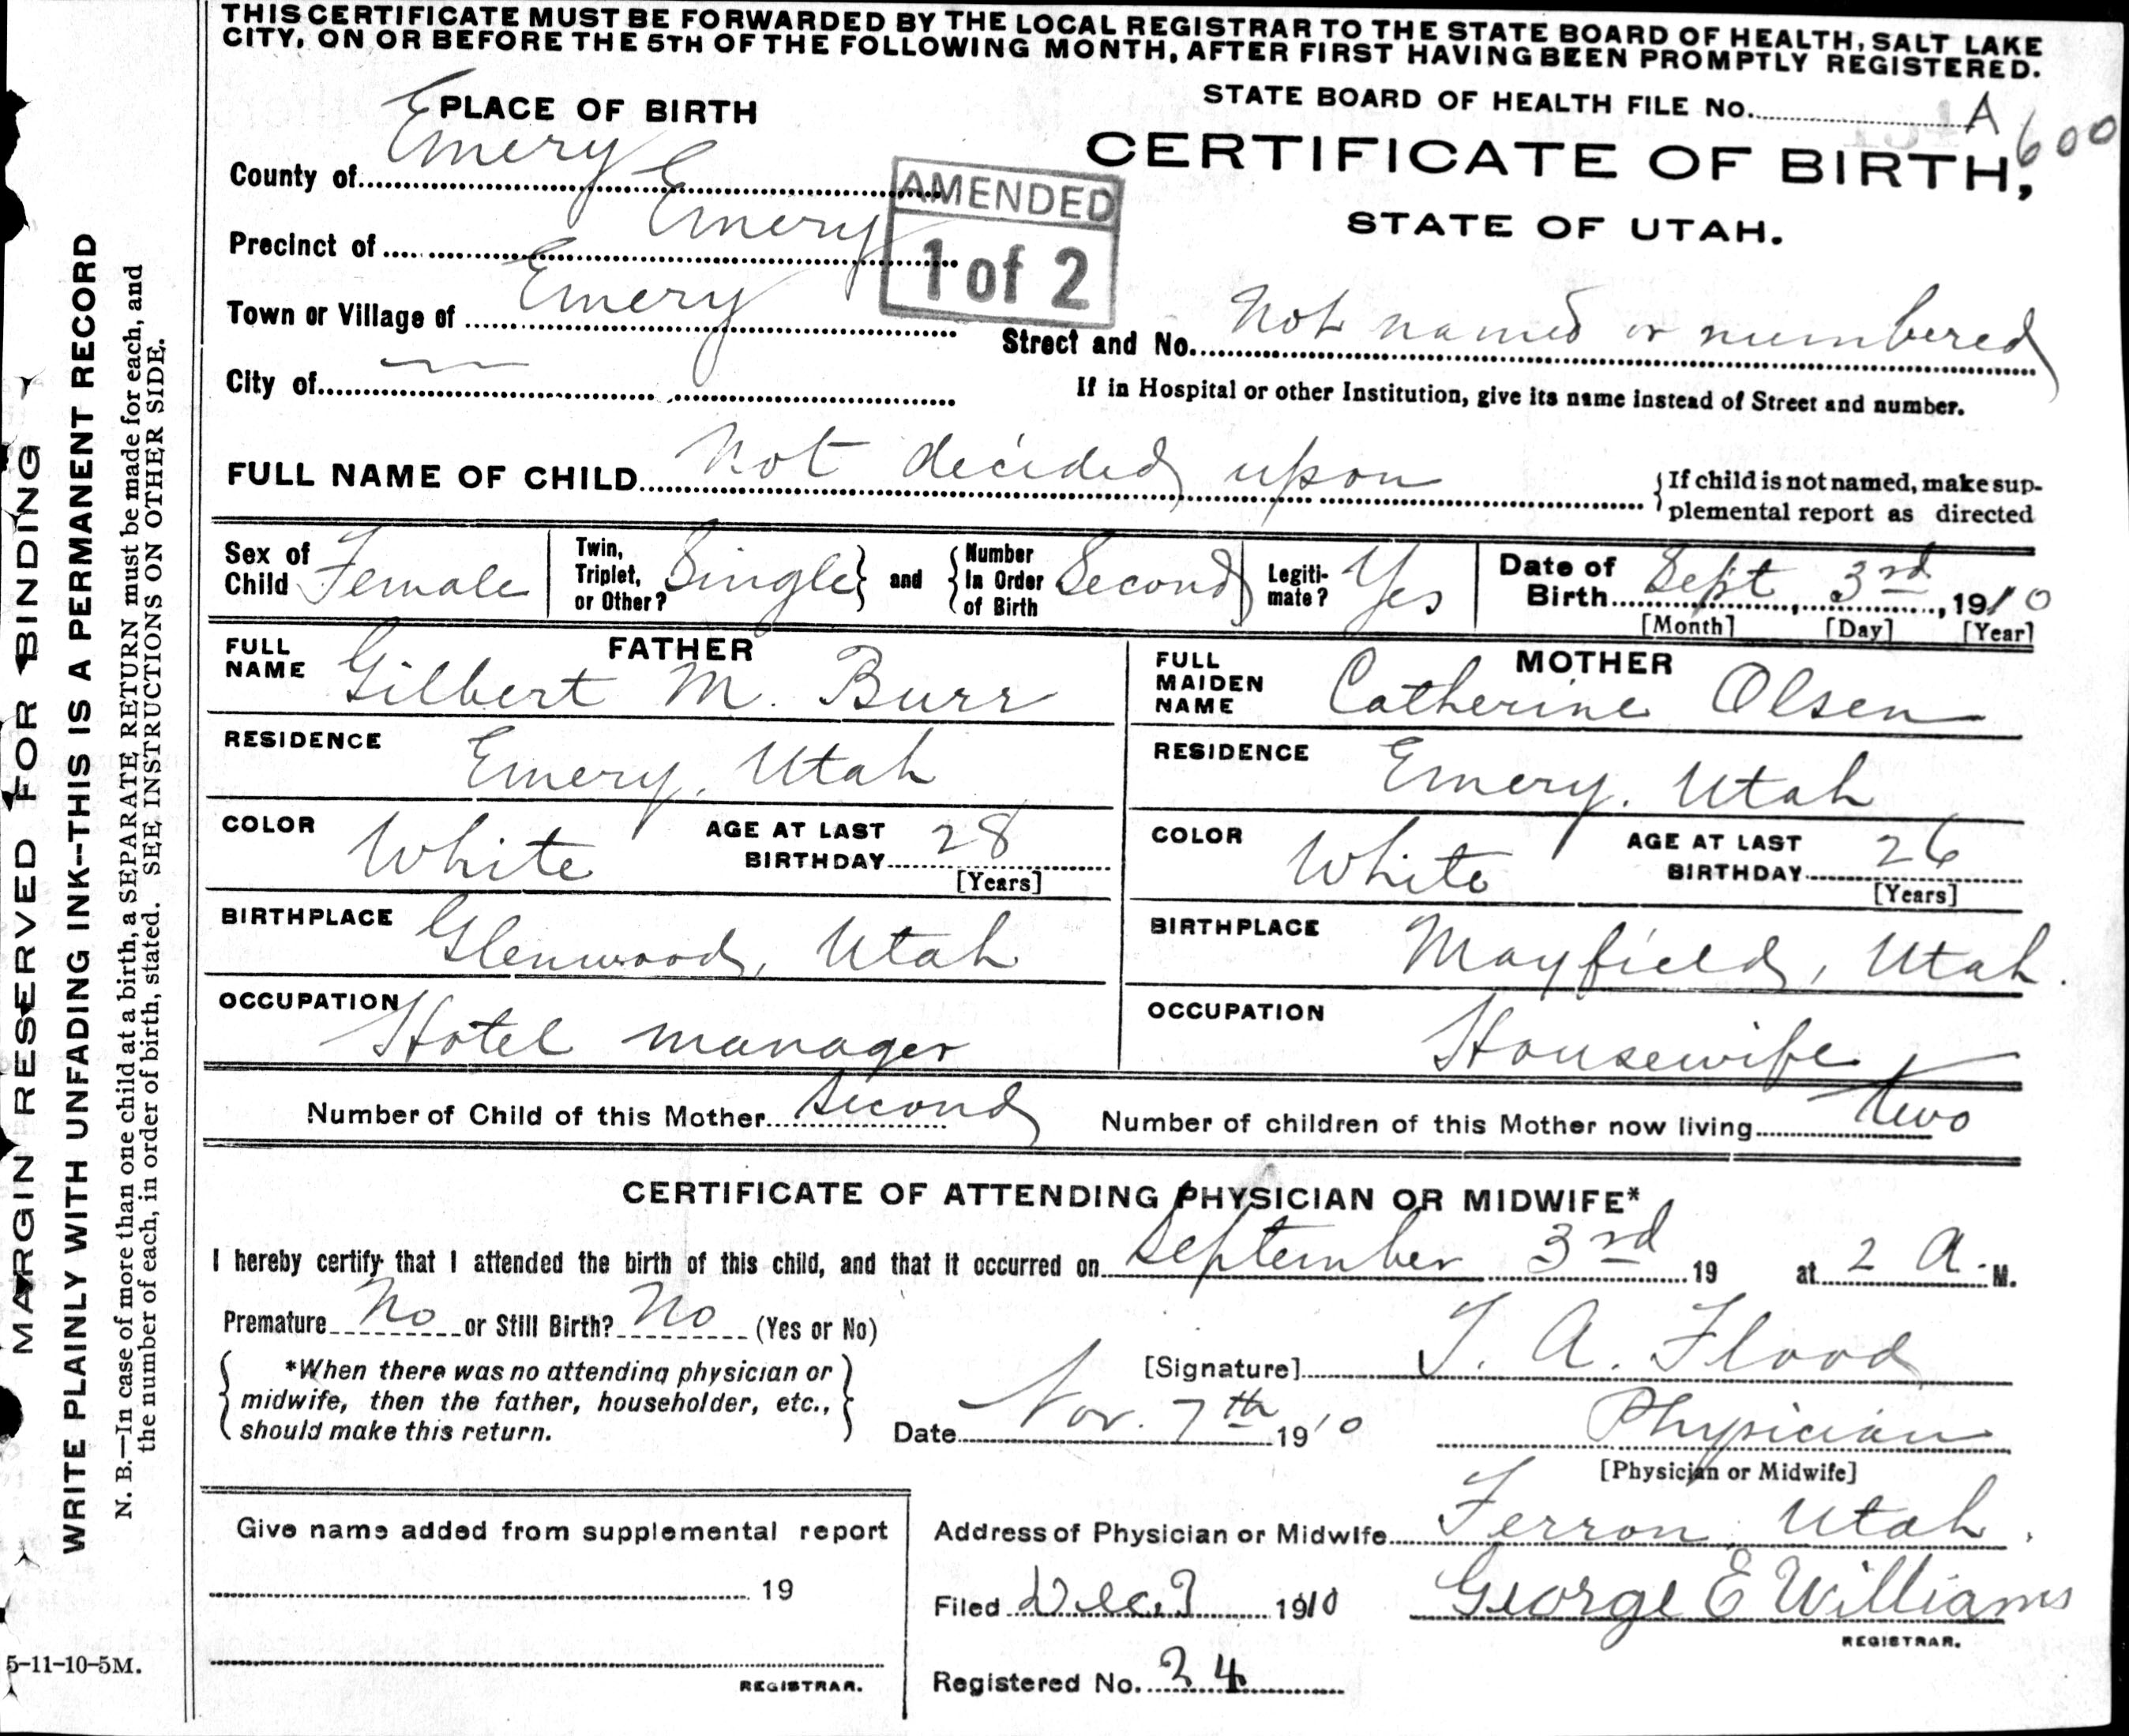 THIS CERTIFICATE MUST BE FORWARDED BY THE LOCAL REGISTRAR TO THE STATE BOARD OF HEALTH, SALT LAKE
CITY, ON OR BEFORE THE 5TH OF THE FOLLOWING MONTH, AFTER FIRST HAVING BEEN PROMPTLY REGISTERED.
PLACE OF BIRTH
STATE BOARD OF HEALTH FILE No. A 600
CERTIFICATE OF BIRTH,
STATE OF UTAH.
County of Emery
AMENDED
1 of 2
Precinct of Emery
Town or Village of Emery
Street and No. Not named or numbered
City of
If in Hospital or other Institution, give its name instead of Street and number.
FULL NAME OF CHILD Not decided upon
{If child is not named, make sup-
plemental report as directed
Sex of Child Female
Twin, Triplet, or Other? Single} and {Number In Order of Birth Second
Legiti-mate? Yes
Date of Birth Sept 3rd, 1910
[Month] [Day] [Year]
FATHER
FULL NAME Gilbert M. Burr
MOTHER
FULL MAIDEN NAME Catherine Olsen
RESIDENCE Emery, Utah
RESIDENCE Emery, Utah
COLOR White AGE AT LAST BIRTHDAY 28 [Years]
COLOR White AGE AT LAST BIRTHDAY 26 [Years]
BIRTHPLACE Glenwood, Utah
BIRTHPLACE Mayfield, Utah.
OCCUPATION Hotel manager
OCCUPATION Housewife
Number of Child of this Mother Second
Number of children of this Mother now living two
CERTIFICATE OF ATTENDING PHYSICIAN OR MIDWIFE*
I hereby certify that I attended the birth of this child, and that it occurred on September 3rd 19 at 2 A. M.
Premature No or Still Birth? No (Yes or No)
{ *When there was no attending physician or
midwife, then the father, householder, etc.,
should make this return. }
[Signature] T. A. Flood
Date Nov. 7th 1910
Physician
[Physician or Midwife]
Give name added from supplemental report
19
REGISTRAR.
Address of Physician or Midwife Ferron Utah.
Filed Dec. 1910 George E Williams
REGISTRAR.
Registered No. 24
5-11-10-5M.
MARGIN RESERVED FOR BINDING
WRITE PLAINLY WITH UNFADING INK--THIS IS A PERMANENT RECORD
N. B.—In case of more than one child at a birth, a SEPARATE RETURN must be made for each, and
the number of each, in order of birth, stated. SEE INSTRUCTIONS ON OTHER SIDE.